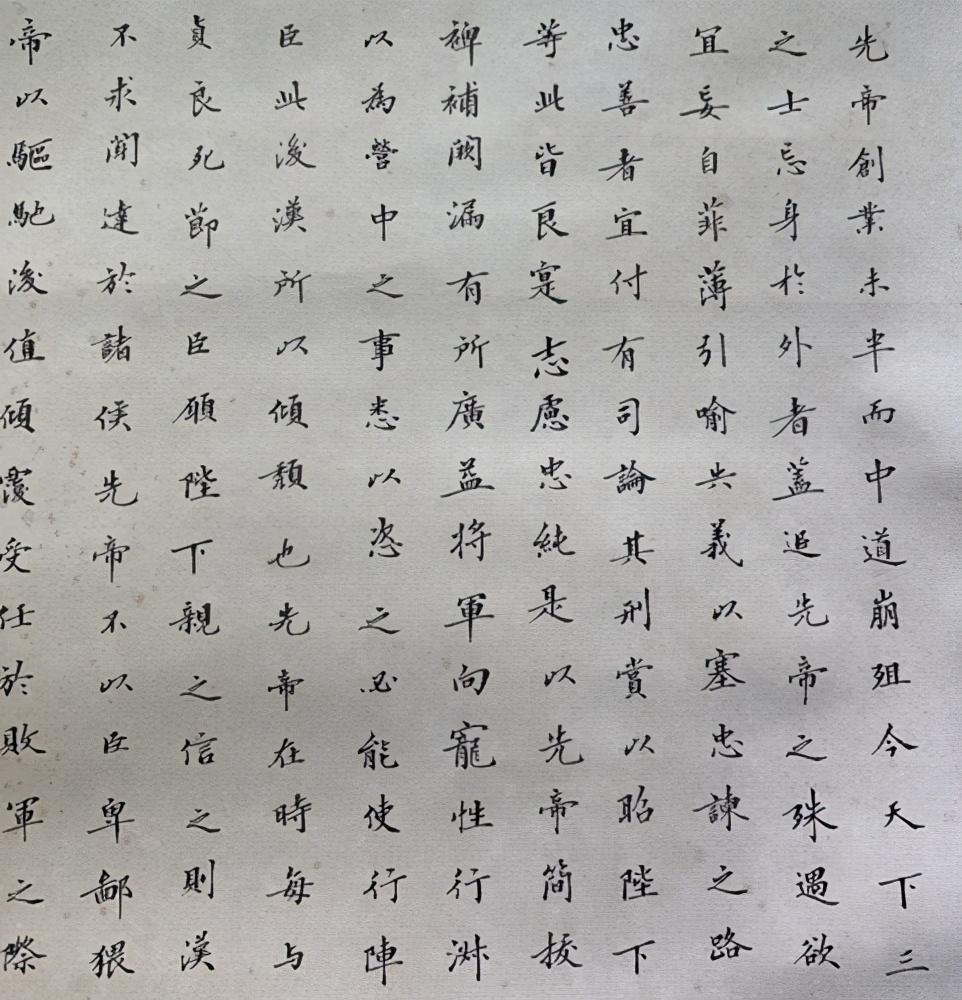 先帝創業未半而中道崩殂今天下三
之士忘身於外者蓋追先帝之殊遇欲
宜妄自菲薄引喻失義以塞忠諫之路
忠善者宜付有司論其刑賞以昭陛下
等此皆良寔志慮忠純是以先帝簡拔
裨補闕漏有所廣益將軍向寵性行淑
以為營中之事悉以咨之必能使行陣
臣此後漢所以傾頹也先帝在時每与
貞良死節之臣願陛下親之信之則漢
不求聞達於諸侯先帝不以臣卑鄙猥
帝以驅馳後值傾覆受任於敗軍之際